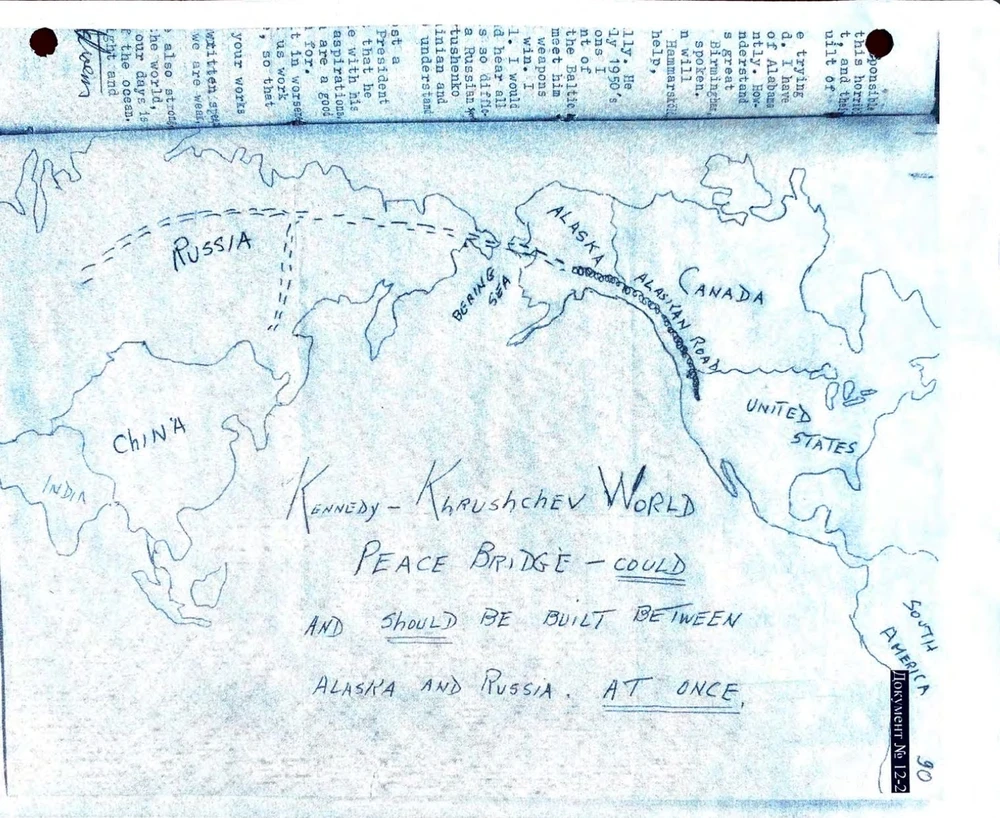 ponsible
this horrib
t, and the
uilt of
e trying
d. I have
of Alabama
ntly. How-
nderstand
s great
Birmingham,
spoken.
n will
Hammarskö
help,
lly. He
ly 1960's
ons I
nt of
the Baltic
meet him
weapons
win. I
l. I would
d hear all
s so diffi-
a Russian
tushenko
inian and
understand
st a
President
that he
e with his
aspirations
are a good
for.
t in worse
us work
, so that
your works
written
we are weak
also strong
he world.
our days is
the ocean.
ght and
RUSSIA
BERING
SEA
ALASKA
ALASKAN ROAD
CANADA
UNITED
STATES
CHINA
INDIA
KENNEDY – KHRUSHCHEV WORLD
PEACE BRIDGE – COULD
AND SHOULD BE BUILT BETWEEN
ALASKA AND RUSSIA. AT ONCE.
SOUTH
AMERICA
Документ № 12-2
90